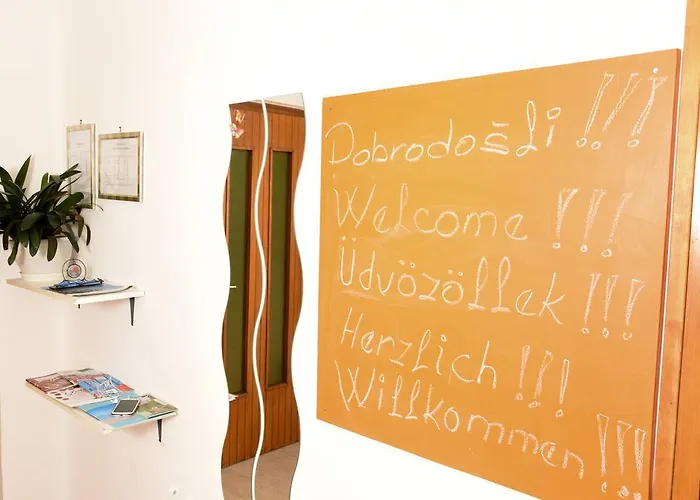 Dobrodošli !!!
Welcome !!!
Üdvözöllek !!!
Herzlich !!!
Willkommen !!!